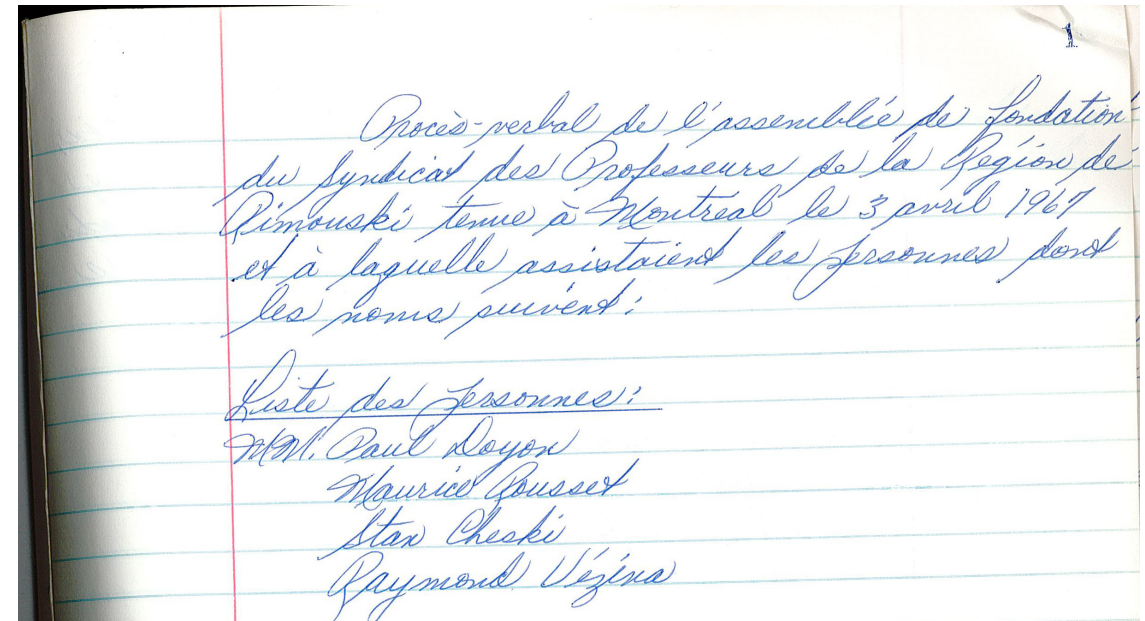 1
Procès-verbal de l'assemblée de fondation
du Syndicat des Professeurs de la Région de
Rimouski tenue à Montréal le 3 avril 1967
et à laquelle assistaient les personnes dont
les noms suivent :
Liste des personnes :
MM. Paul Doyon
Maurice Rousset
Stan Cheski
Raymond Vézina